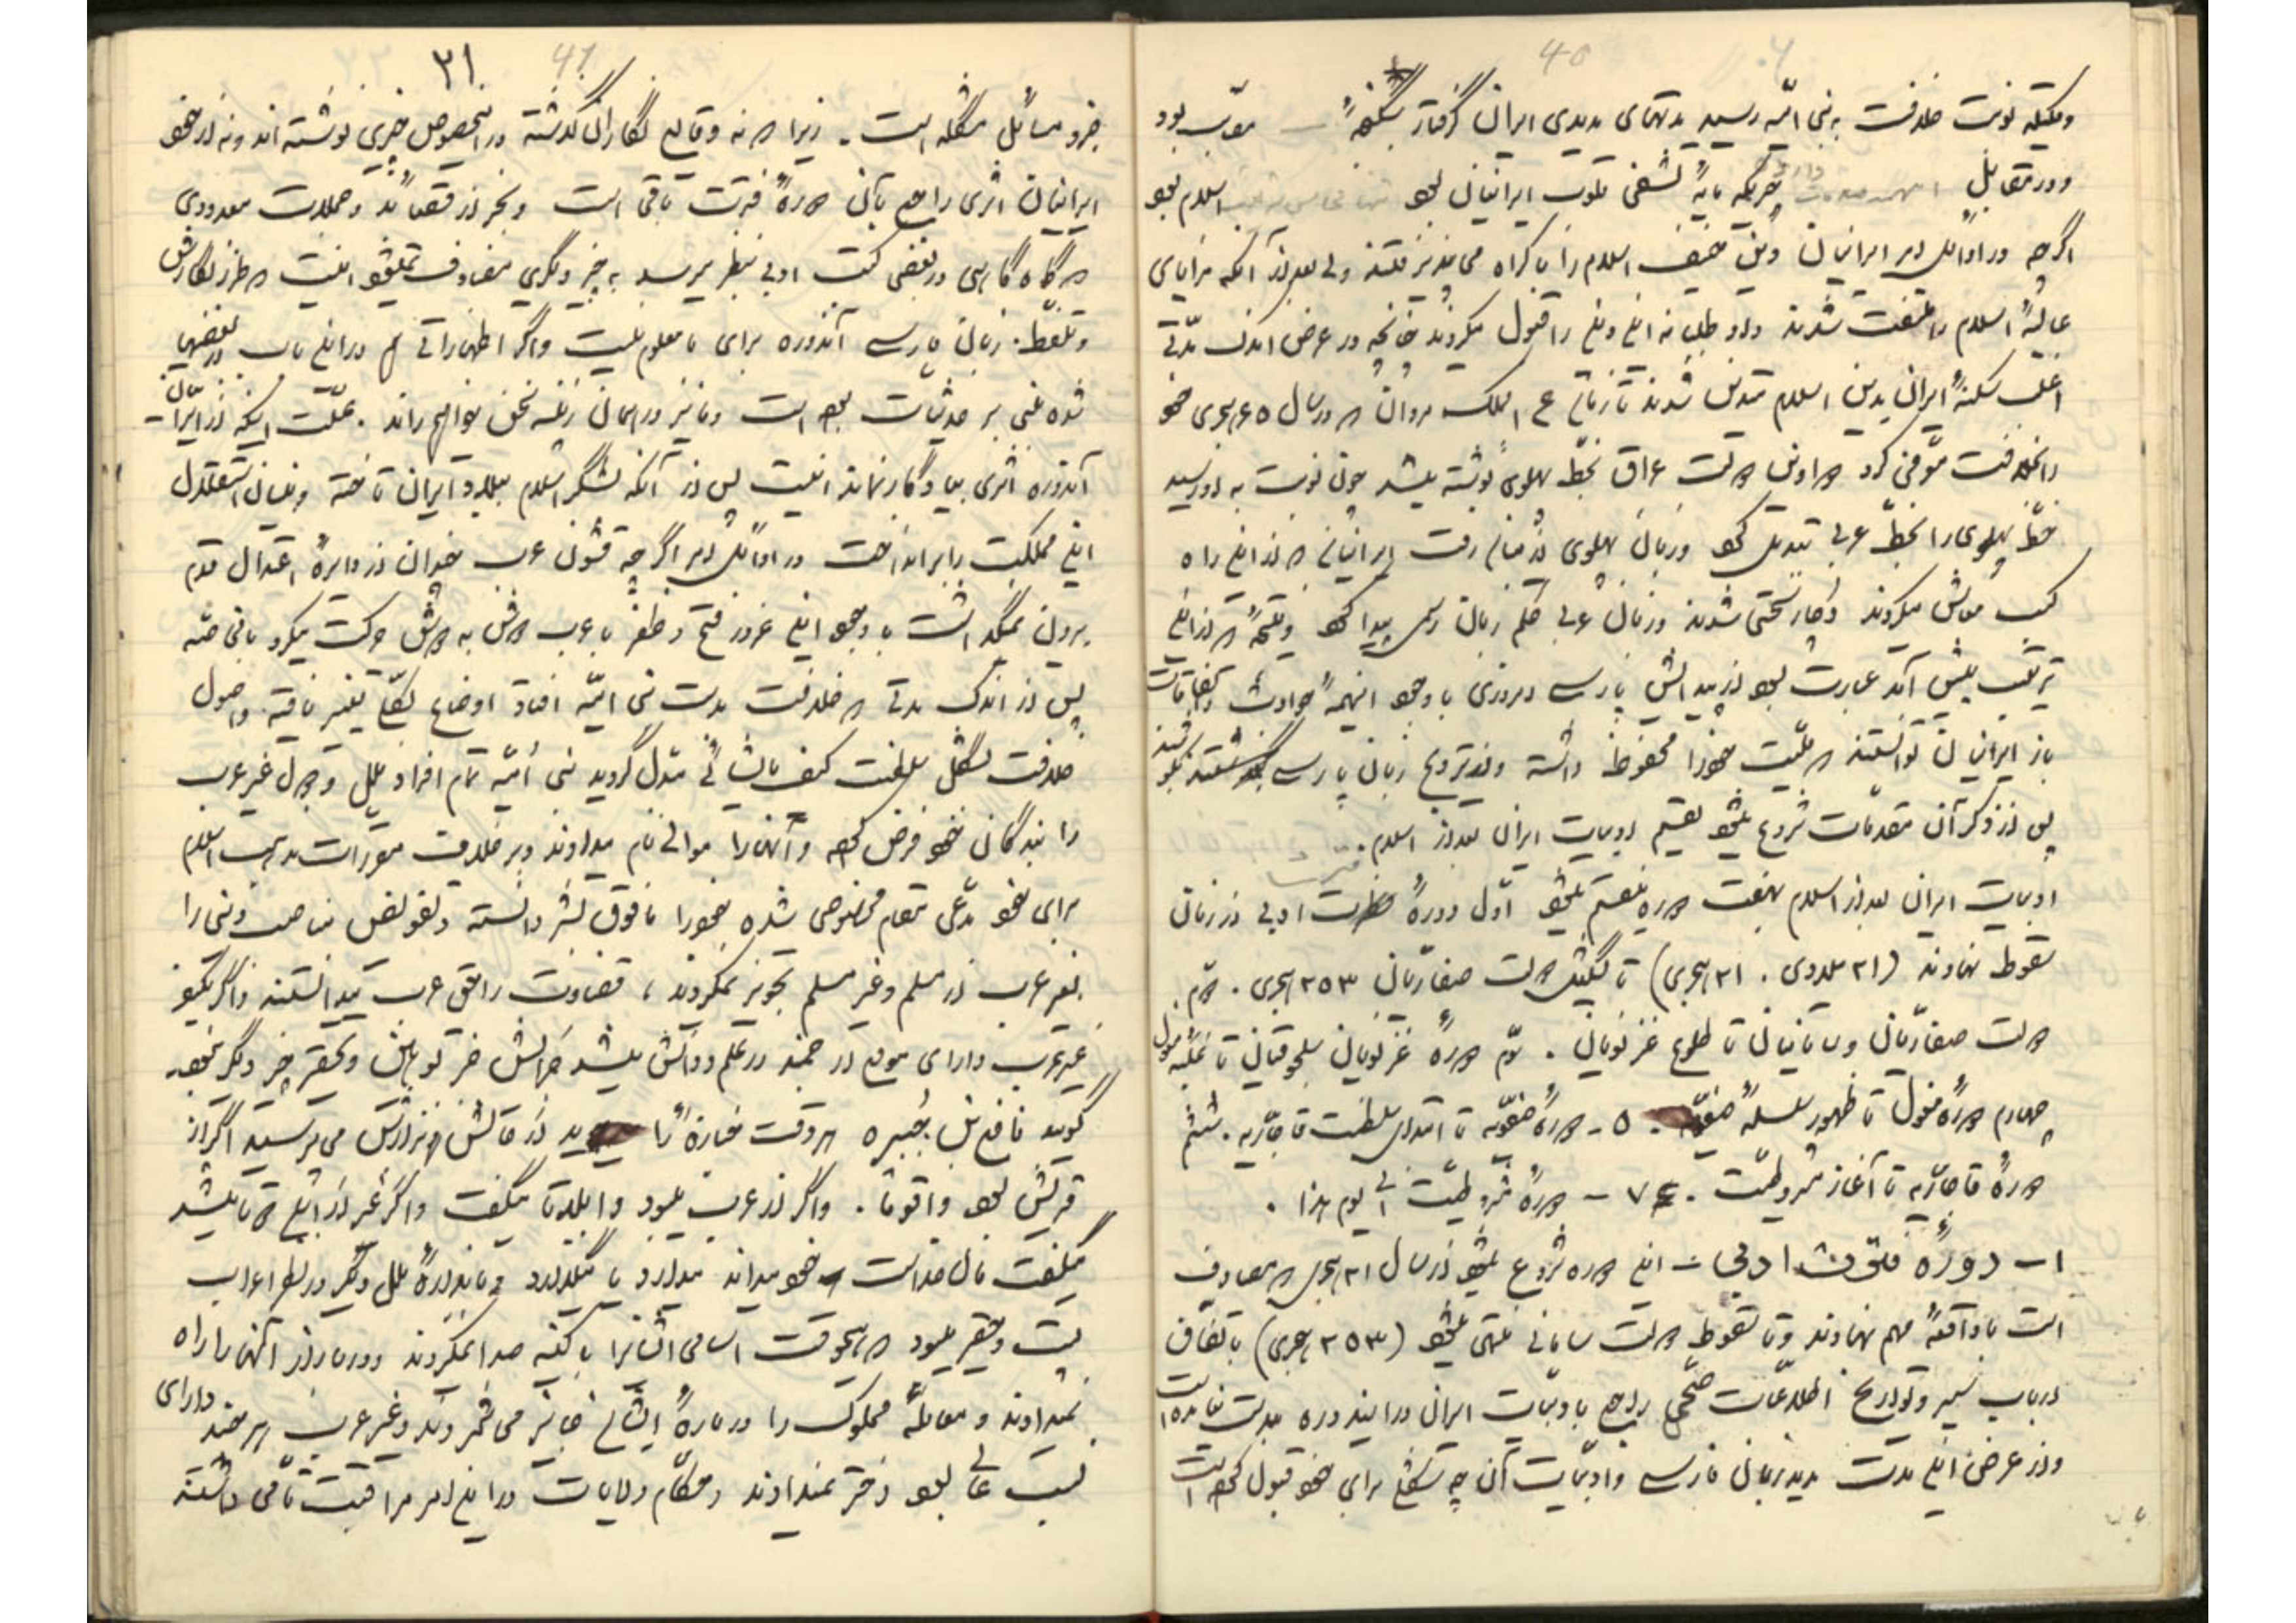 40
وقتیکه نوبت خلافت به بنی امیّه رسید مدتهای مدیدی ایران گرفتار شکنجهٔ معرّب بود
و در مقابل چیزیکه مایهٔ تشفی قلوب ایرانیان بود اسلام بود
اگرچه در اوائل امر ایرانیان دین حنیف اسلام را باکراه می پذیرفتند ولی بعد از آنکه مزایای
عالیهٔ اسلام را ملتفت شدند داوطلبانه این دین را قبول میکردند چنانچه در عرض اندک مدّتی
اغلب سکنهٔ ایران بدین اسلام متدین شدند تا زمان ع الملک مروان که در سال ۶۵ هجری خود
دار الخلافت متوفی کرد دواوین دولت عراق بخطّ پهلوی نوشته میشد چون نوبت به او رسید
خطّ پهلوی را بخطّ عربی تبدیل کرد و زبان پهلوی از میان رفت ایرانیانی که از این راه
کسب معاش میکردند دچار سختی شدند و زبان عربی حکم زبان رسمی پیدا کرد و نتیجهٔ که از این
ترتیب پیش آمد عبارت بود از پیدایش پارسی امروزی با وجود اینهمه حوادث و اتفاقات
باز ایرانیان توانستند که ملّیت خود را محفوظ داشته و در ترویج زبان پارسی بکوشند
پس از ذکر آن مقدمات شروع میشود بتقسیم ادبیات ایران بعد از اسلام.
ادبیات ایران بعد از اسلام بهفت دوره منقسم میشود اوّل دورهٔ فترت ادبی از زمان
سقوط نهاوند (۲۱ میلادی . ۲۱ هجری) تا تشکیل دولت صفاریان ۲۵۳ هجری . دوّم
دولت صفّاریان و سامانیان تا طلوع غزنویان . سوّم دورهٔ غزنویان سلجوقیان تا غلبهٔ مغول
چهارم دورهٔ مغول تا ظهور سلسلهٔ صفویّه . ۵ - دورهٔ صفویّه تا ابتدای سلطنت قاجاریه . ششم
دورهٔ قاجاریه تا آغاز مشروطیّت . ۷ - دورهٔ مشروطیّت الی یوم هذا .
۱ - دورهٔ فترت ادبی :- این دوره شروع میشود از سال ۲۱ هجری که مصادف
است با واقعهٔ مهم نهاوند و تا سقوط دولت سامانی منتهی میشود (۲۵۳ هجری) باتفاق
ارباب سیر و تواریخ اطلاعات صحیحی راجع بادبیّات ایران در ایندوره بدست نیامده است
و در عرض این مدت مدید زبان فارسی و ادبیّات آن چه شکلی برای خود قبول کرده است
۲۱ 41
جزو مسائل مشکله است . زیرا که نه وقایع نگاران گذشته در اینخصوص چیزی نوشته اند و نه از خود
ایرانیان اثری راجع بآن دورهٔ فترت باقی است و بجز از قصائد و جملات معدودی
که گاه گاهی در بعضی کتب ادبی بنظر میرسد به چیز دیگری مصادف نمیشود اینست که طرز نگارش
و تلفظ زبان پارسی آندوره برای ما معلوم نیست و اگر اظهاراتی هم در این باب از بعضیها
شده مبنی بر حدثیات بوده است و ما نیز در همان زمینه سخن خواهیم راند . علّت اینکه از ایران
آندوره اثری بیادگار نمانده اینست پس از آنکه لشگر اسلام ببلاد ایران تاخته و بنیان استقلال
این مملکت را برانداخت در اوائل امر اگرچه قشون عرب چندان از دایرهٔ اعتدال قدم
بیرون نمیگذاشت با وجود این غرور فتح و ظفر با عرب دوش به دوش حرکت میکرد باقی مانده
پس از اندک مدتی که خلافت بدست بنی امیّه افتاد اوضاع بکلّی تغییر یافته و اصول
خلافت بشکل سلطنت کیف مایشائی مبدل گردید بنی اُمیّه تمام افراد ملل و دول غیر عرب
را بندگان خود فرض کرده و آنها را موالی نام میدادند و بر خلاف مقررات مذهب اسلام
برای خود مدّعی مقام مخصوصی شده خود را مافوق بشر دانسته و تفویض مناصب دینی را
بغیر عرب از مسلم و غیر مسلم تجویز نمیکردند ، قضاوت را حق عرب میدانستند و اگر یکنفر
غیر عرب دارای موقع ارجمند در علم و دانش میشد جزایش جز توهین و تحقیر چیز دیگر نبود.
گویند نافع بن جُبیره هر وقت جنازهٔ را میدید از قائلش و نژادش می پرسید اگر از
قریش بود واقوما . و اگر از عرب میبود وا بلدتا میگفت و اگر غیر از این دو تا میشد
میگفت مال خداست خود میداند میدارد یا میگذارد و باندازهٔ ملل دیگر در نظر اعراب
پست و حقیر میبود که هیچوقت اسامی آنانرا با کنیه صدا نمیکردند و در معابر آنها را راه
نمیدادند و معاملهٔ مملوک را در بارهٔ ایشان جایز می شمردند و غیر عرب هر چند دارای
نسب عالی بود دختر نمیدادند و حکّام ولایات در این امر مراقبت تامّی داشته